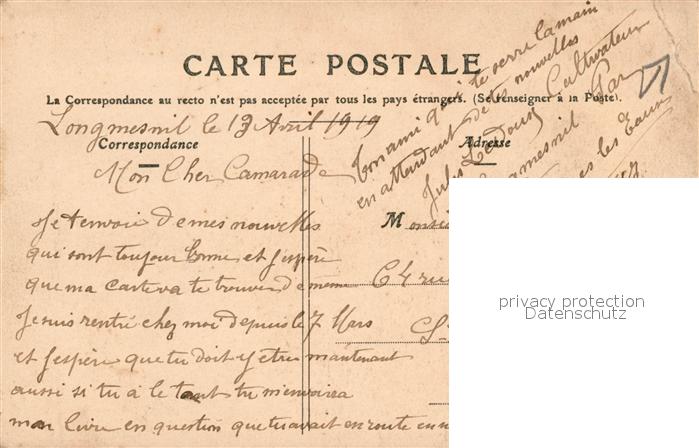 CARTE POSTALE
La Correspondance au recto n'est pas acceptée par tous les pays étrangers. (Se renseigner à la Poste).
Longmesnil le 13 Avril 1919
Correspondance
Adresse
Mon Cher Camarade
Je t'envoie de mes nouvelles
qui sont toujour bonne et j'espère
que ma carte va te trouver de meme
Je suis rentré chez moi depuis le 7 Mars
et j'espère que tu doit y etre maintenant
aussi si tu à le tant tu m'envoira
mon livre en question que tu avait en route
ton ami qui te serre la main
en attendant de tes nouvelles
Jules Ledoux Cultivateur
Par
les Eaux
64 rue
privacy protection
Datenschutz